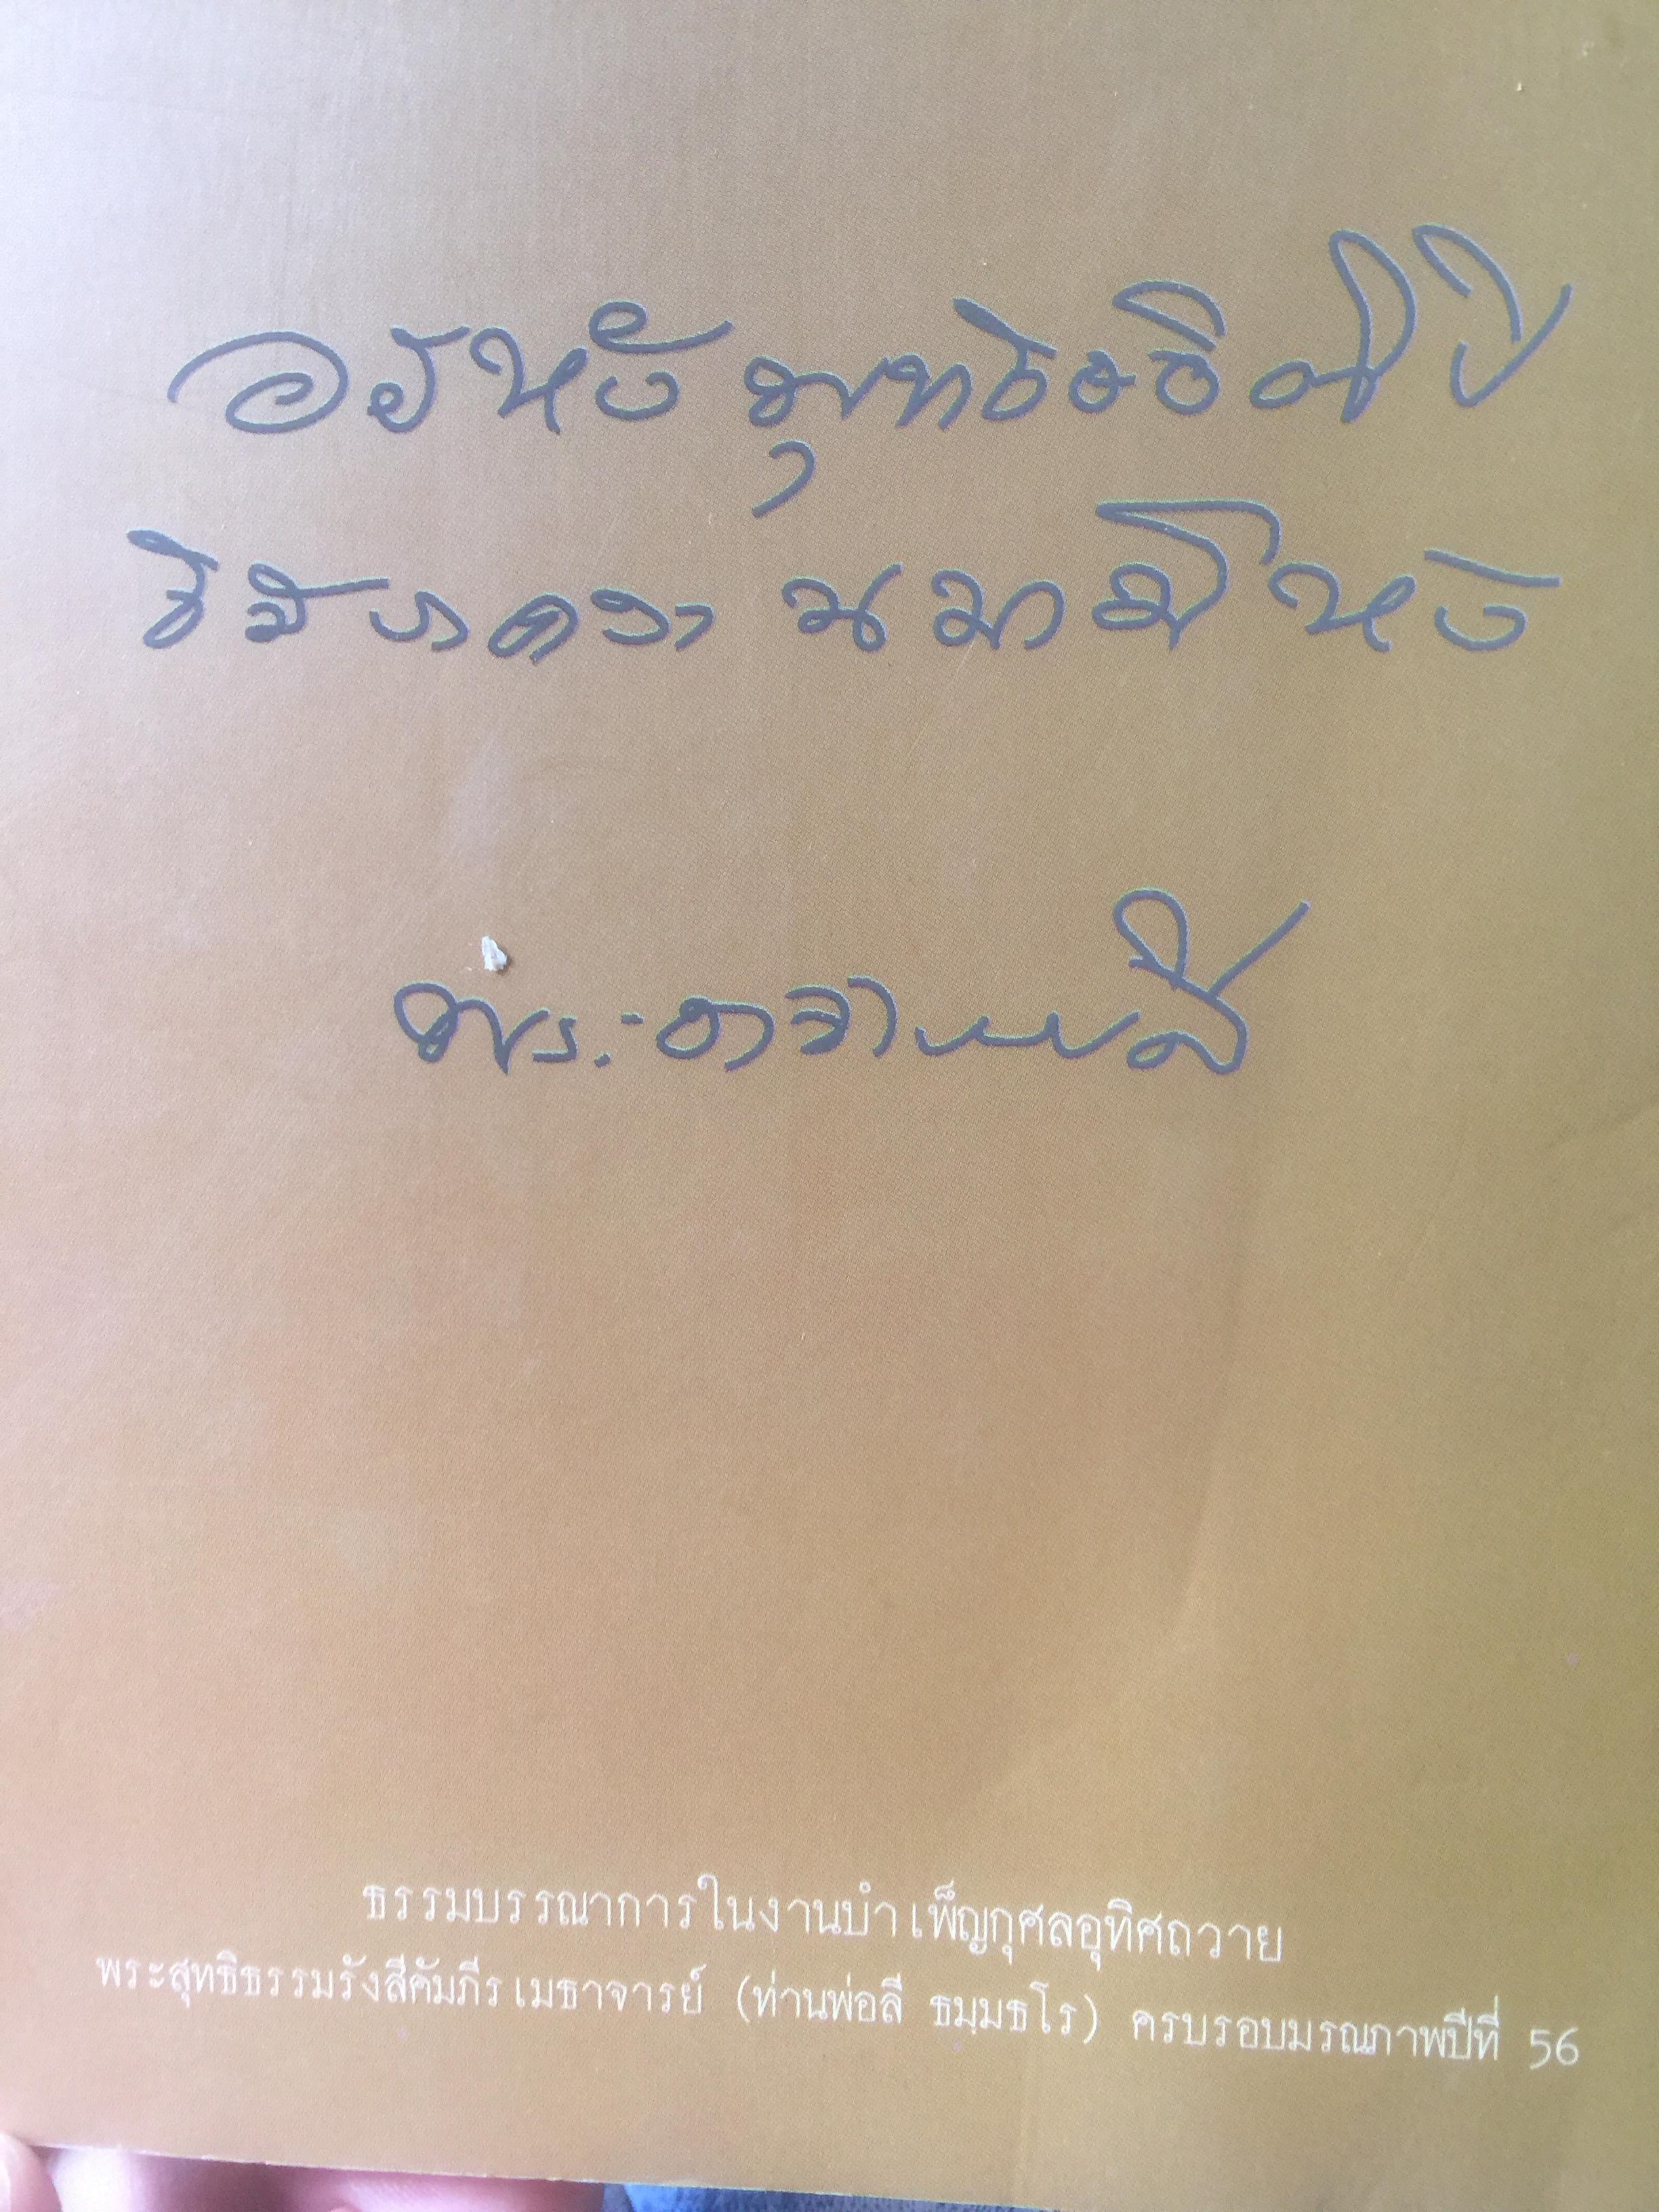 อรหัง พุทโธ อิติปิ
โส ภควา นมามิหัง
พระอาจารย์ลี
ธรรมบรรณาการในงานบำเพ็ญกุศลอุทิศถวาย
พระสุทธิธรรมรังสีคัมภีรเมธาจารย์ (ท่านพ่อลี ธมฺมธโร) ครบรอบมรณภาพปีที่ 56